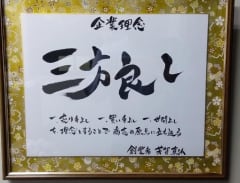 企業理念
三方良し
一、売り手よし 一、買い手よし 一、世間よし
を理念とすることで商売の原点に立ち返る
創業者